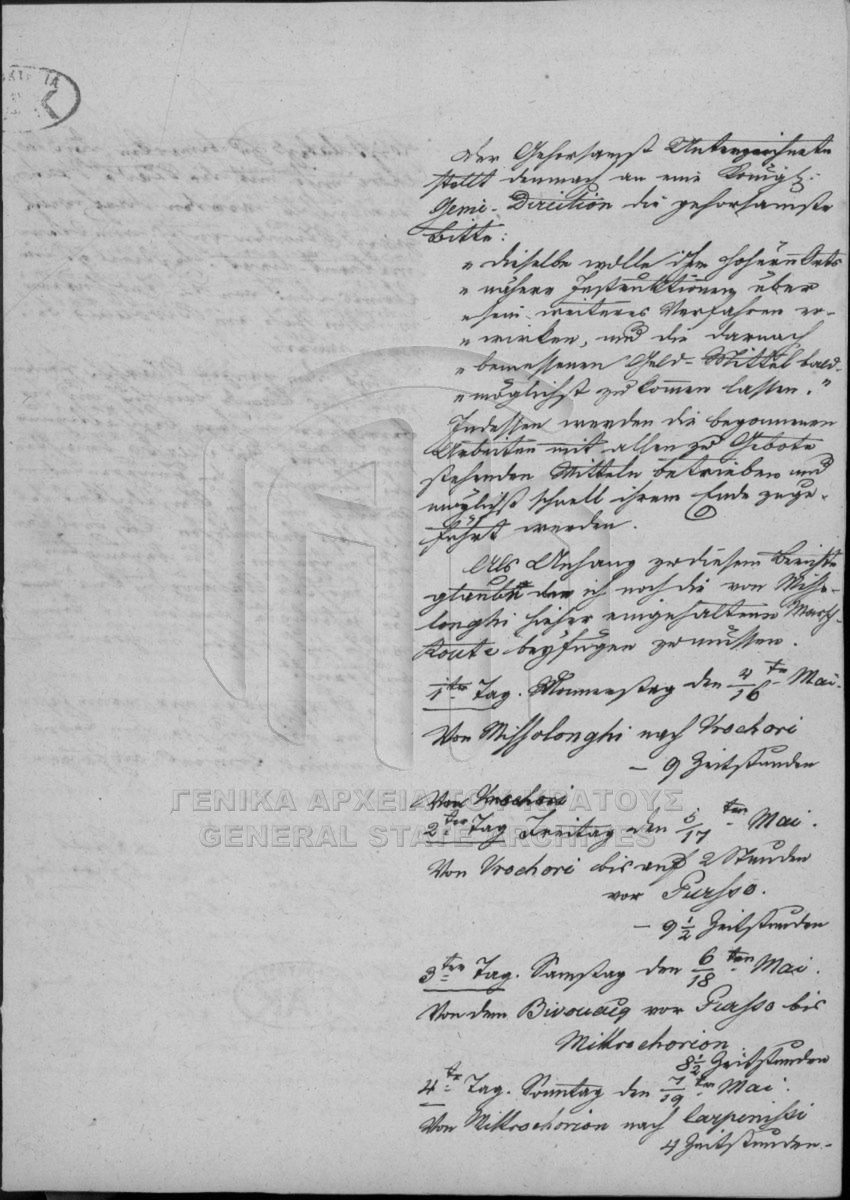 Der Gehorsamst Unterzeichnete
stellt demnach an eine Königl:
Genie-Direction die gehorsamste
Bitte:
„ dieselbe wolle ihm höhern Orts
„ nähere Instruktionen über
„ sein weiteres Verfahren er-
„ wirken, und die darnach
„ bemessenen Geld-Mittel bald-
„ möglichst zukommen lassen."
Indessen werden die begonnenen
Arbeiten mit allen zu Gebote
stehenden Mitteln betrieben und
möglichst schnell ihrem Ende zuge-
führt werden.
Als Anhang zu diesem Berichte
glaubt ich noch die von Misso-
longhi hieher eingehaltene Marsch-
Route beyfügen zu müssen.
1ter Tag. Donnerstag den 4/16ten Mai.
Von Missolonghi nach Vrochori
– 9 Zeitstunden
Von Vrochori
2ter Tag Freitag den 5/17ten Mai.
Von Vrochori bis auf 2 Stunden
vor Pursso.
– 9 1/2 Zeitstunden
3ter Tag. Samstag den 6/18ten Mai.
Von dem Bivouacq vor Pursso bis
Mikrochorion
8 1/2 Zeitstunden
4ter Tag. Sonntag den 7/19ten Mai.
Von Mikrochorion nach Carpenissi
4 Zeitstunden.
ΓΕΝΙΚΑ ΑΡΧΕΙΑ ΤΟΥ ΚΡΑΤΟΥΣ
GENERAL STATE ARCHIVES